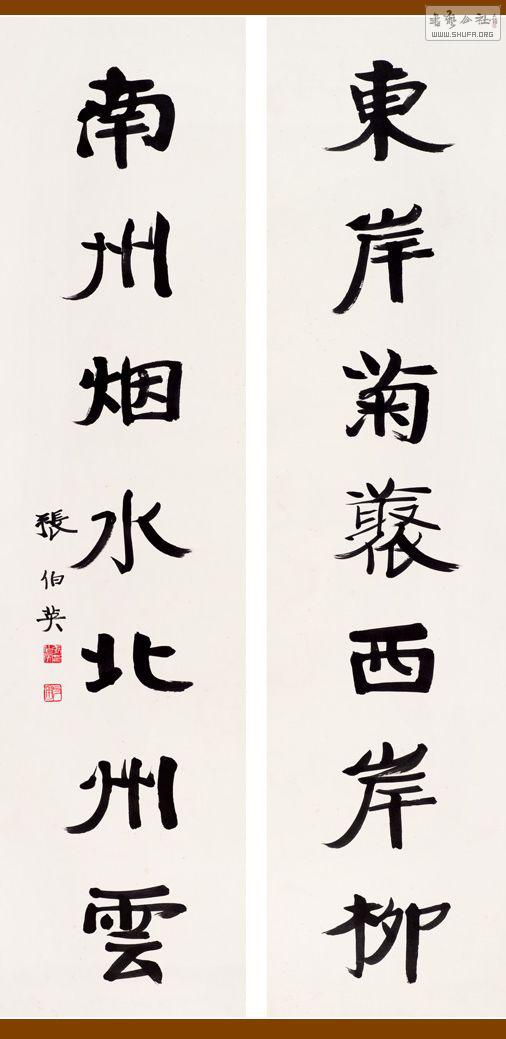 書藝公社
WWW.SHUFA.ORG
東岸菊藂西岸柳
南州烟水北州雲
張伯英